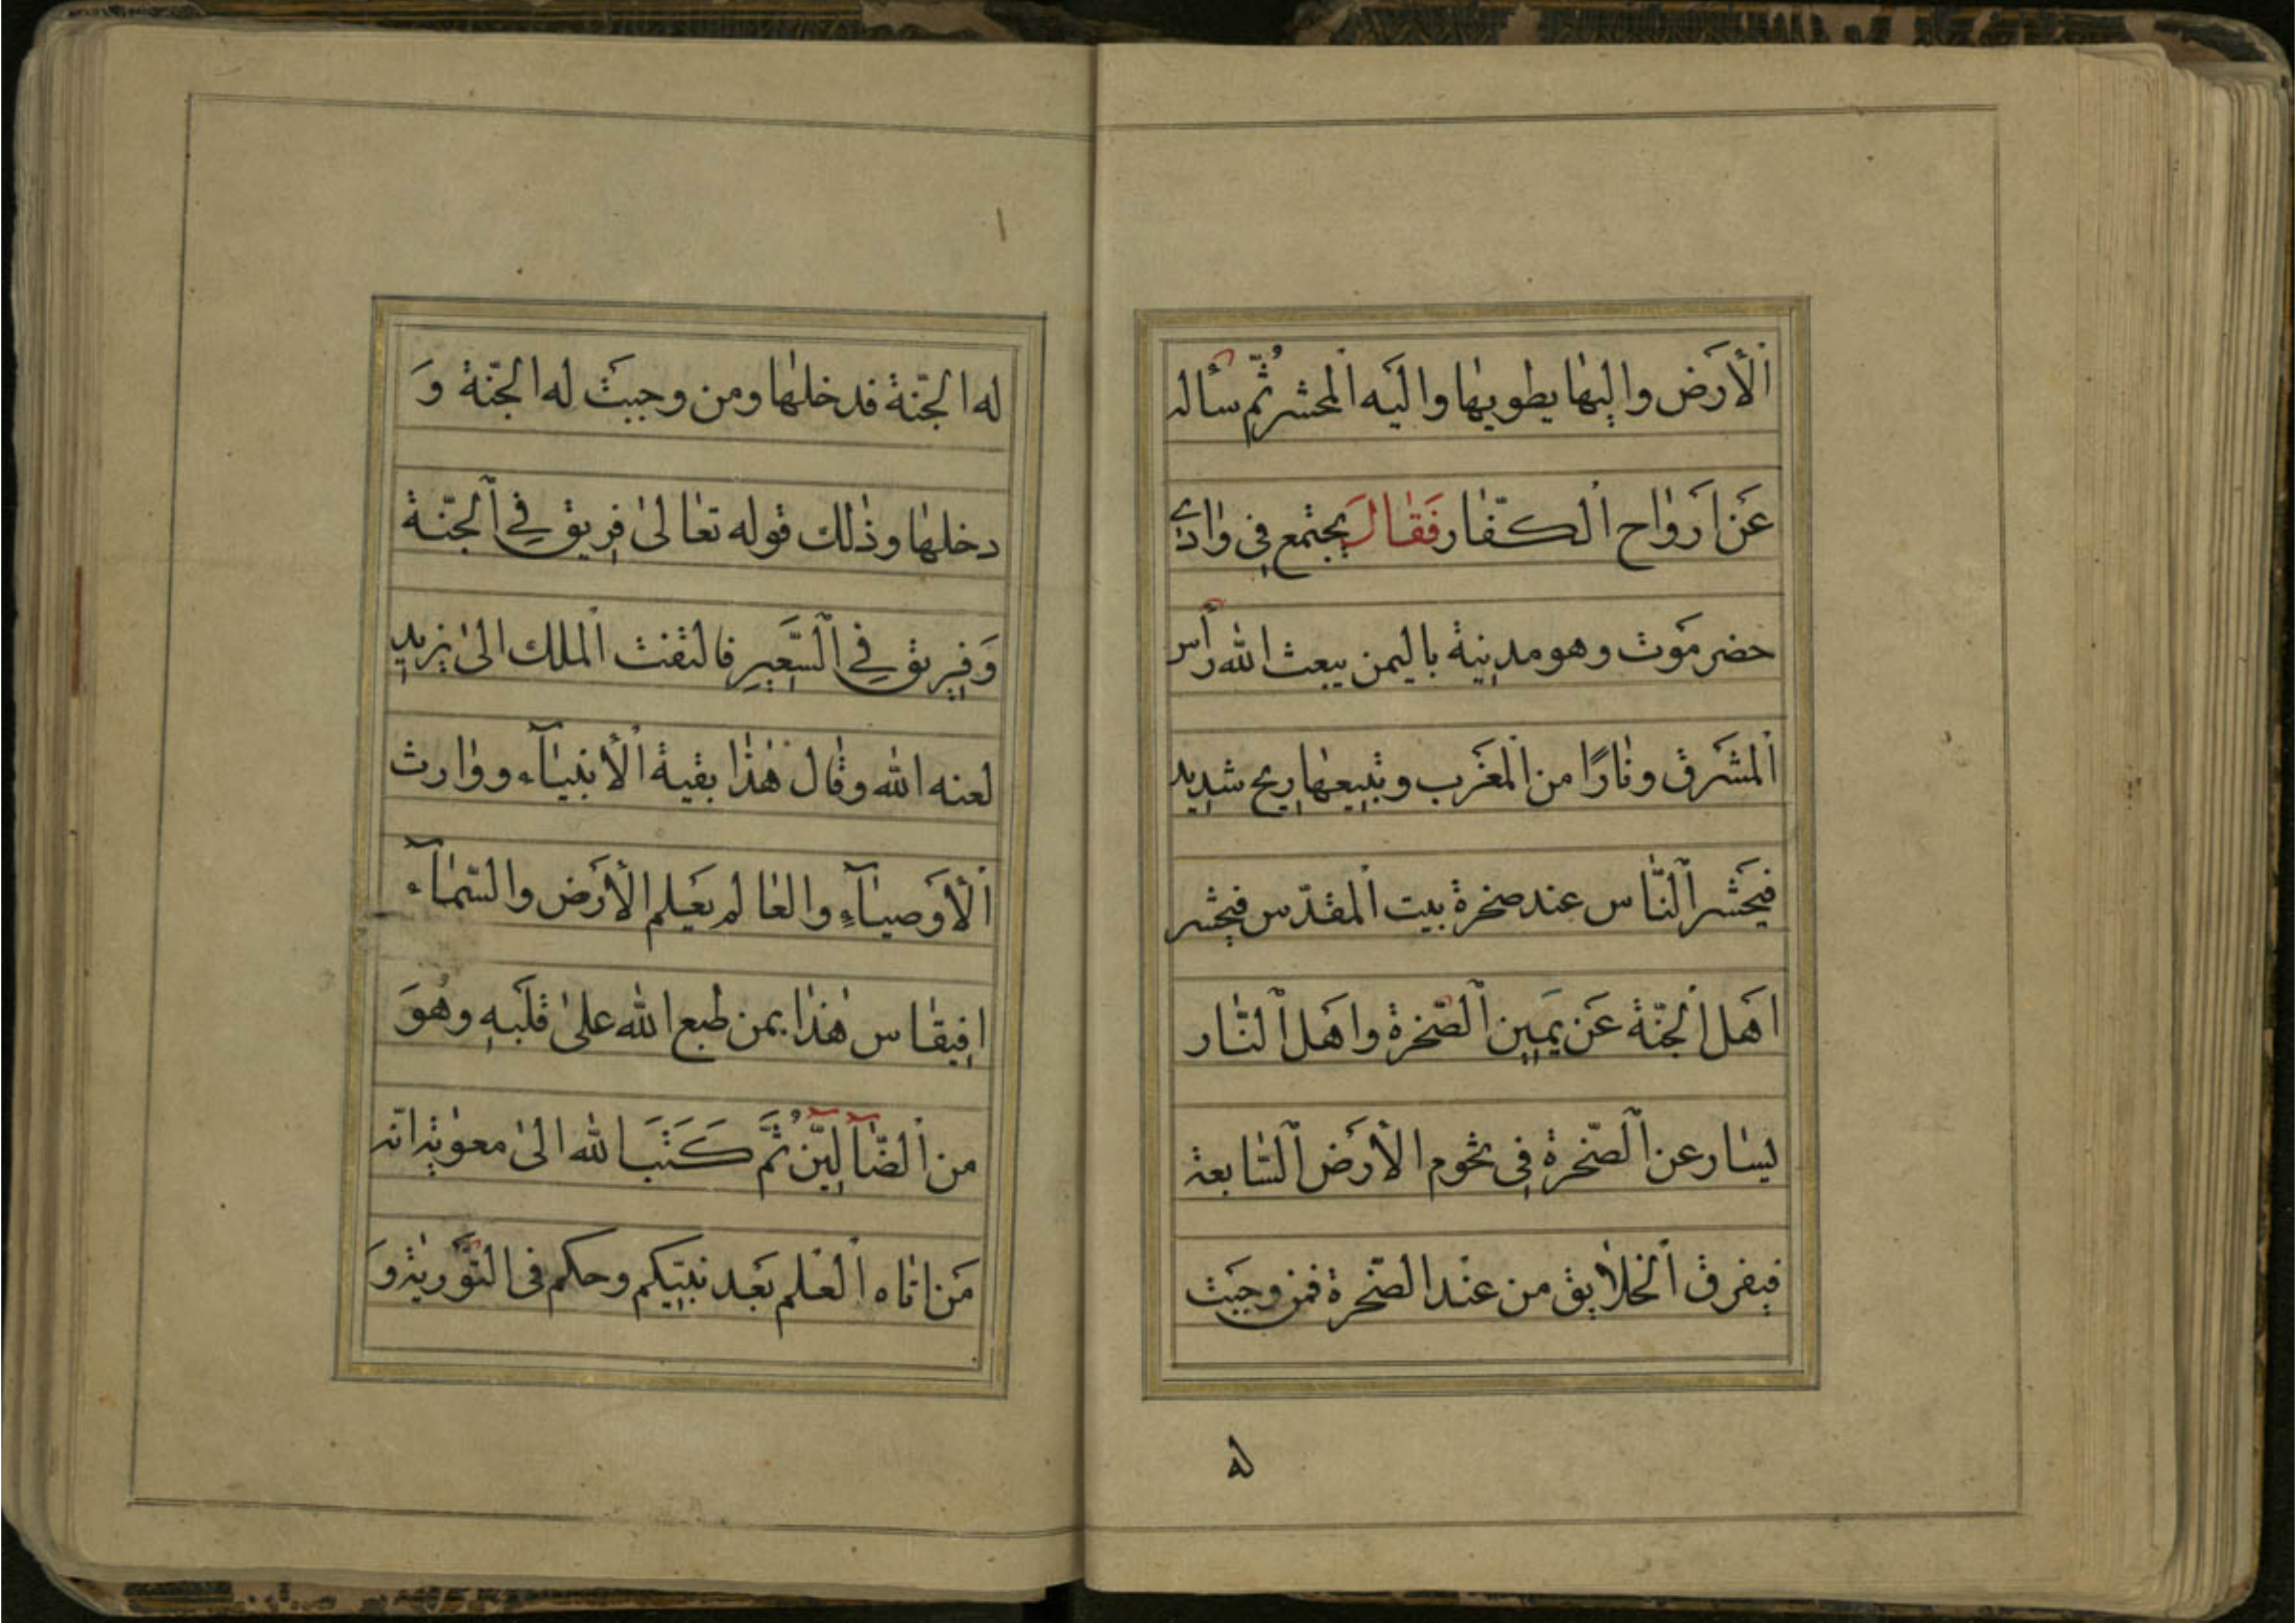 اَلْأَرَض واِلَيهٰا يطويهٰا واليَه اْلمحشر ثُمّ سأله
عَن اَرَوٰاح الكفّٰار فَقٰالَ يجتمع فِى وٰادِى
حضر مَوت وهو مدينة باليمن يبعث الله رأس
اْلمشَرق ونٰارًا من اْلمغَرب وتبيعهٰا ريح شديد
فيحَشر اْلنّٰاس عند صخرة بيت اْلمقدّس فيحشر
اهَل اْلجنّة عَن يَمِين الصّخرة واهَل اْلنّٰار
يسٰار عن الصّخرة فِى تخوم الأرَض السّٰابعة
فيفرق اْلخلٰايق من عنْد الصّخرة فمن وجبَت
له
له الجنّة فدخلهٰا ومن وجبَت له الجنّة وَ
دخلهٰا وذٰلك قوله تعٰالىٰ فِريق فِي اْلجنّة
وَفِريق فِي السَّعِيرِ فالتفت اْلملك الىٰ يزيد
لعنه الله وقٰال هٰذٰا بقية اْلأنبيٰآء ووٰارث
اْلأوَصيٰآءِ والعٰالم يعَلم الأرَض والسّمٰآء
افيقٰاس هٰذٰا بمن طبع الله علىٰ قلَبهِ وهُوَ
من الضّٰآلِّين ثُمَّ كَتَبَ الله الىٰ معوٰية انّه
مَن اتٰاه اْلعْلم بعَد نبيّكم وحكم فى التَّوْريٰة وَ